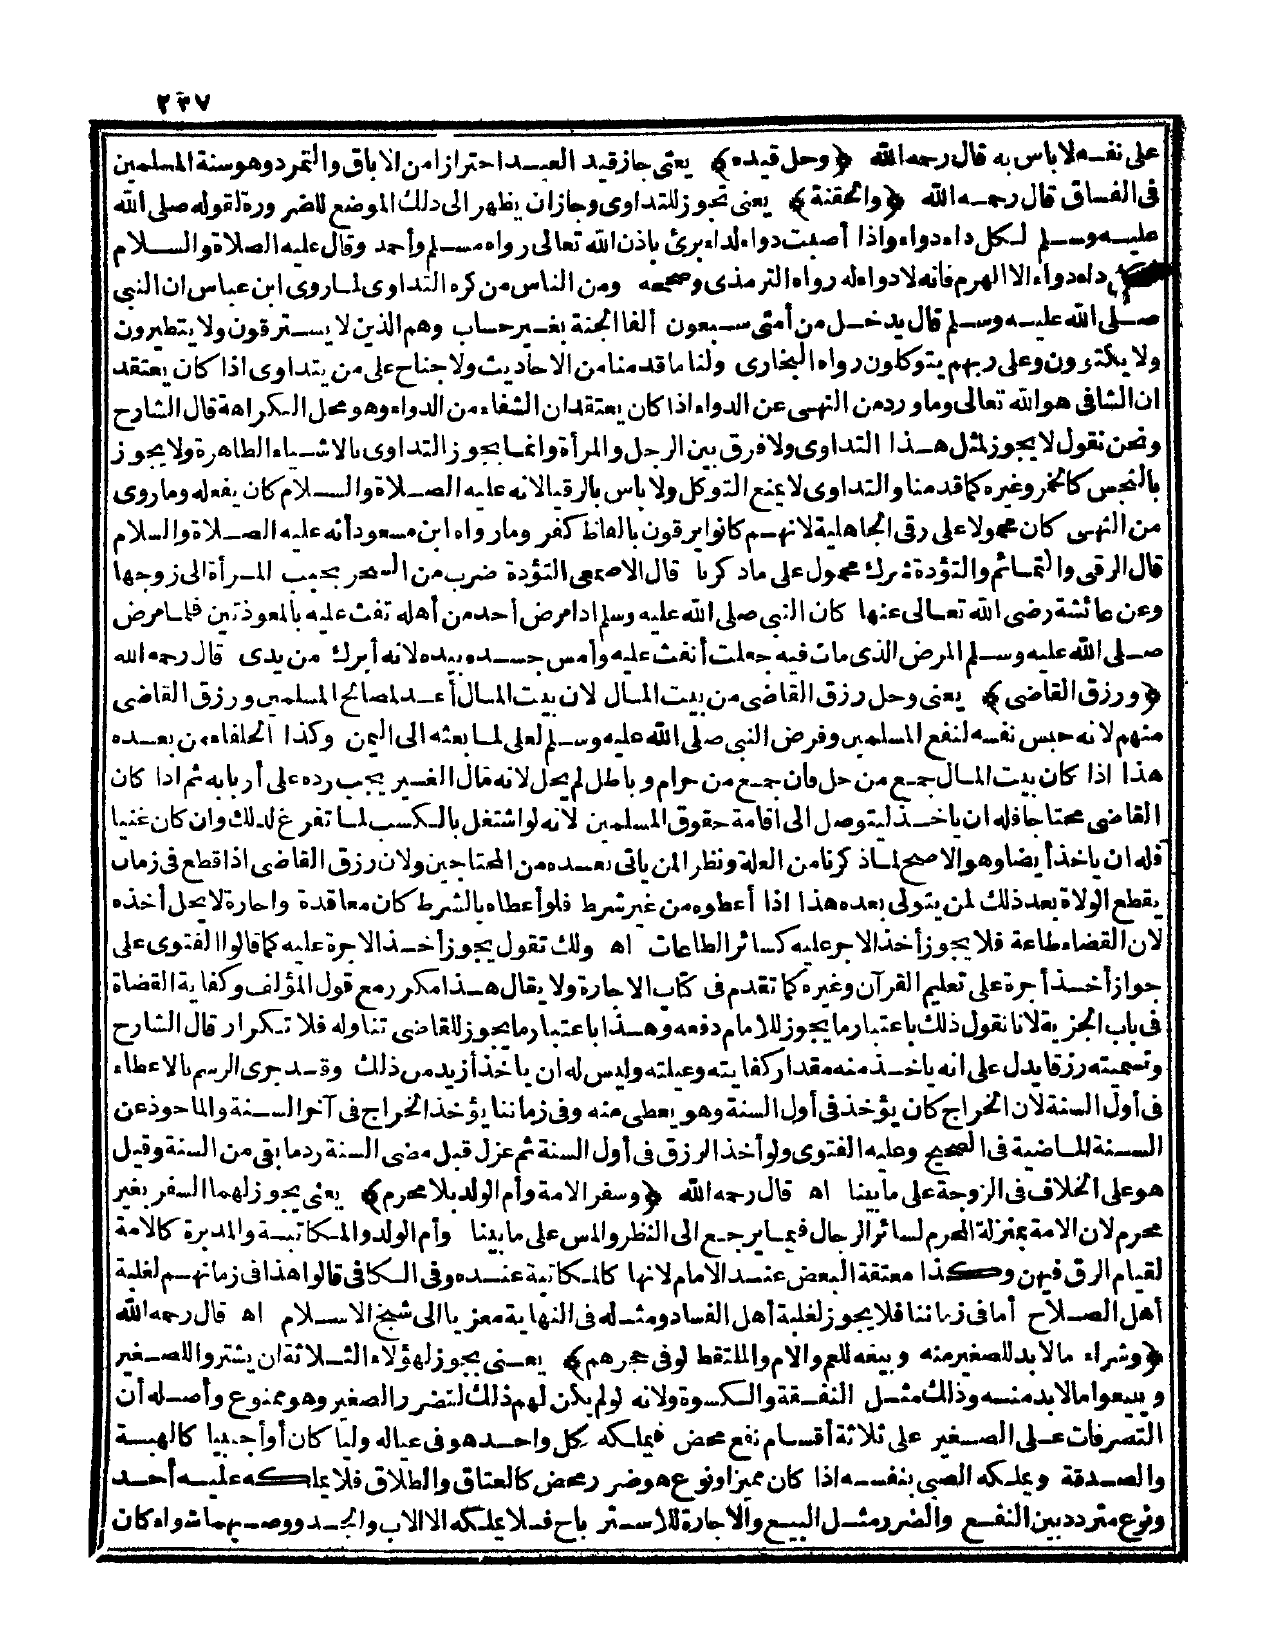 ٢٣٧
على نفسه لا باس به قال رحمه الله ﴿وحل قيده﴾ يعني جاز قيد العبد احترازا من الاباق والتمرد وهو سنة المسلمين
فى الفساق قال رحمه الله ﴿والحقنة﴾ يعنى تجوز للتداوى وجاز ان يظهر الى ذلك الموضع للضرورة لقوله صلى الله
عليه وسلم لكل داء دواء واذا أصبت دواء لداء برئ باذن الله تعالى رواه مسلم وأحمد وقال عليه الصلاة والسلام
داء دواء الا الهرم فانه لا دواء له رواه الترمذى وصححه ومن الناس من كره التداوى لما روى ابن عباس ان النبى
صلى الله عليه وسلم قال يدخل من أمتى سبعون ألفا الجنة بغير حساب وهم الذين لا يسترقون ولا يتطيرون
ولا يكتوون وعلى ربهم يتوكلون رواه البخارى ولنا ما قدمنا من الاحاديث ولا جناح على من يتداوى اذا كان يعتقد
ان الشافى هو الله تعالى وما ورد من النهى عن الدواء اذا كان يعتقد ان الشفاء من الدواء وهو محل الكراهة قال الشارح
ونحن نقول لا يجوز لمثل هذا التداوى ولا فرق بين الرجل والمرأة وانما يجوز التداوى بالاشياء الطاهرة ولا يجوز
بالنجس كالخمر وغيره كما قدمنا والتداوى لا يمنع التوكل ولا باس بالرقيا لانه عليه الصلاة والسلام كان يفعله وما روى
من النهى كان محمولا على رقى الجاهلية لانهم كانوا يرقون بالفاظ كفر وما رواه ابن مسعود أنه عليه الصلاة والسلام
قال الرقى والتمائم والتؤدة شرك محمول على ماد كرنا قال الاصمعى التؤدة ضرب من السحر يحبب المرأة الى زوجها
وعن عائشة رضى الله تعالى عنها كان النبى صلى الله عليه وسلم ادا مرض أحد من أهله نفث عليه بالمعوذتين فلما مرض
صلى الله عليه وسلم المرض الذى مات فيه جعلت أنفث عليه وأمس جسده بيده لانه أبرك من يدى قال رحمه الله
﴿ورزق القاضى﴾ يعنى وحل رزق القاضى من بيت المال لان بيت المال أعد لمصالح المسلمين ورزق القاضى
منهم لانه حبس نفسه لنفع المسلمين وفرض النبى صلى الله عليه وسلم لعلى لما بعثه الى اليمن وكذا الخلفاء من بعده
هذا اذا كان بيت المال جمع من حل فان جمع من حرام وباطل لم يحل لانه مال الغير يجب رده على أربابه ثم اذا كان
القاضى محتاجا فله ان ياخذ ليتوصل الى اقامة حقوق المسلمين لانه لو اشتغل بالكسب لما تفرغ لذلك وان كان غنيا
فله ان ياخذ أيضا وهو الاصح لما ذكرنا من العلة ونظرا لمن ياتى بعده من المحتاجين ولان رزق القاضى اذا قطع فى زمان
يقطع الولاة بعد ذلك لمن يتولى بعده هذا اذا أعطوه من غير شرط فلو أعطاه بالشرط كان معاقدة واجارة لا يحل أخذه
لان القضاء طاعة فلا يجوز أخذ الاجر عليه كسائر الطاعات اه ولك تقول يجوز أخذ الاجرة عليه كما قالوا الفتوى على
جواز أخذ أجرة على تعليم القرآن وغيره كما تقدم فى كتاب الاجارة ولا يقال هذا مكرر مع قول المؤلف وكفاية القضاة
فى باب الجزية لانا نقول ذلك باعتبار ما يجوز للامام دفعه وهذا باعتبار ما يجوز للقاضى تناوله فلا تكرار قال الشارح
وتسميته رزقا يدل على انه ياخذ منه مقدار كفايته وعيلته وليس له ان ياخذ أزيد من ذلك وقد جرى الرسم بالاعطاء
فى أول السنة لان الخراج كان يؤخذ فى أول السنة وهو يعطى منه وفى زماننا يؤخذ الخراج فى آخر السنة والماخوذ عن
السنة الماضية فى الصحيح وعليه الفتوى ولو أخذ الرزق فى أول السنة ثم عزل قبل مضى السنة رد ما بقى من السنة وقيل
هو على الخلاف فى الزوجة على ما بينا اه قال رحمه الله ﴿وسفر الامة وأم الولد بلا محرم﴾ يعنى يجوز لهما السفر بغير
محرم لان الامة بمنزلة المحرم لسائر الرجال فيما يرجع الى النظر والمس على ما بينا وأم الولد والمكاتبة والمدبرة كالامة
لقيام الرق فيهن وكذا معتقة البعض عند الامام لانها كالمكاتبة عنده وفى الكافى قالوا هذا فى زمانهم لغلبة
أهل الصلاح أما فى زماننا فلا يجوز لغلبة أهل الفساد ومثله فى النهاية معزيا الى شيخ الاسلام اه قال رحمه الله
﴿وشراء مالا بد للصغير منه وبيعه للعم والام والملتقط لو فى حجرهم﴾ يعنى يجوز لهؤلاء الثلاثة ان يشتروا للصغير
ويبيعوا مالا بد منه وذلك مثل النفقة والكسوة ولانه لو لم يكن لهم ذلك لتضرر الصغير وهو ممنوع وأصله أن
التصرفات على الصغير على ثلاثة أقسام نفع محض فيملكه كل واحد هو فى عياله وليا كان أو أجنبيا كالهبة
والصدقة ويملكه الصبى بنفسه اذا كان مميزا ونوع هو ضرر محض كالعتاق والطلاق فلا يملكه عليه أحد
ونوع متردد بين النفع والضرر مثل البيع والاجارة للاسترباح فلا يملكه الا الاب والجد ووصيهما سواء كان